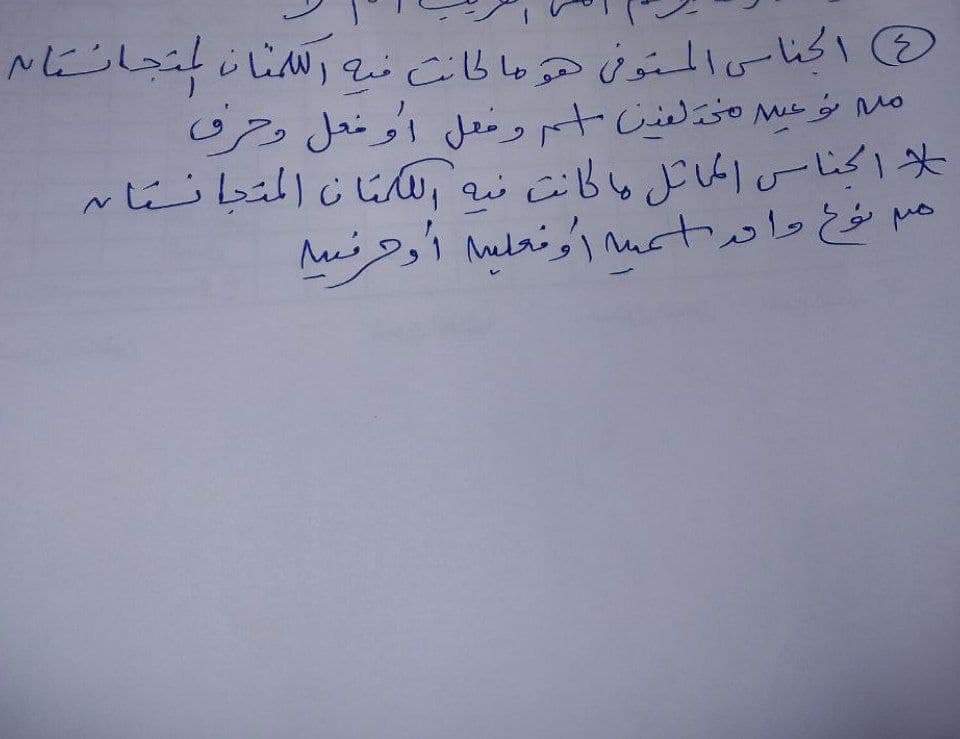 ٤ الجناس المستوفى هو ما كانت فيه الكلمتان المتجانستان
من نوعين مختلفين اسم وفعل أو فعل وحرف
* الجناس المماثل ما كانت فيه الكلمتان المتجانستان
من نوع واحد اسمين أو فعلين أو حرفين